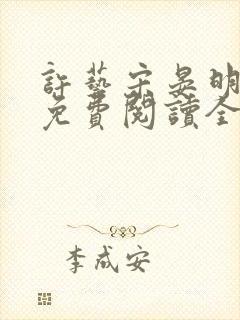 許藝宋晏明
免費閱讀全
李成安